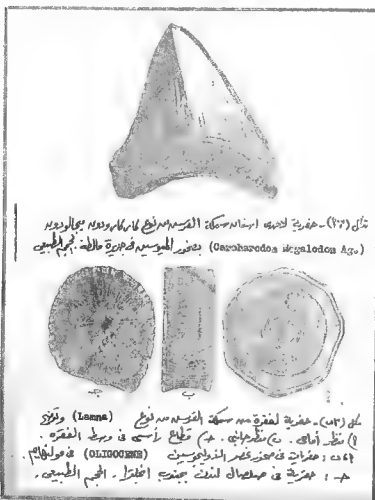 شكل (٢٢)ـ حفرية لاحدى اسنان سمكة القرش من نوع كاركارودون ميجالودون
(Carcharodon Megalodon Ag.) بصخور الميوسين فى جزيرة مالطة الحجم الطبيعى
جـ ب
شكل ـ حفرية لفقرة من سمكة القرش من نوع (Lamna)
أ) منظر أمامى . ب) منظر جانبى . جـ) قطاع رأسى فى وسط الفقرة .
أ، ب : حفريات فى صخور عصر الاوليجوسين (OLIGOCENE) فى
جـ : حفرية فى صلصال لندن بجنوب انجلترا . الحجم الطبيعى .